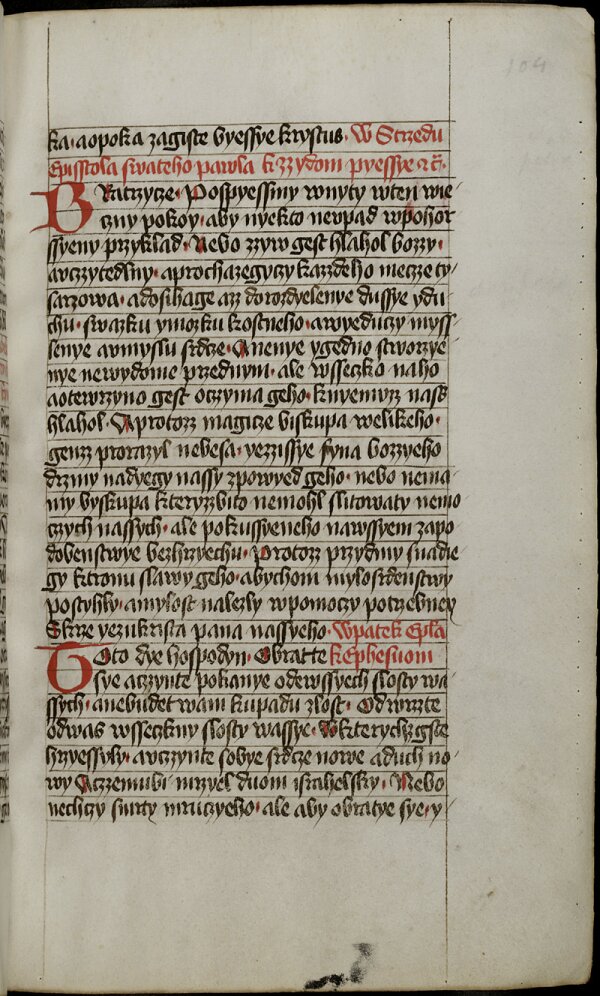 104
ka · aopoka zagiste byessye krystus · W Strzedu
Episstola swateho pawla k zzydom pyessye ⁊ cz̃ ·
Bratrzycze · Pospyessmy wnyty wten wie
czny pokoy · aby nyekto neupad wpohor
ssyeny przyklad · Nebo zzyw gest hlahol bozzy ·
auczzytedlny · aprochazegyczy kazzdeho mecze ty
sarzowa · adosihage azz dorozdyelenye dussye ydu
chu · swazku ymozku kostneho · awyeduczy myss
lenye aumyslu srdcze · Anenye ygedno stworzye
nye newydome przednym · ale wsseczko naho
aotewrzyno gest oczyma geho · knyemuz nass
hlahol · Aprotozz magicze biskupa welikeho ·
genzz prorazyl nebesa · yezzissye syna bozzyeho
drzmy nadyegy nassy zpowyed geho · nebo nema
my byskupa kteryzzbito nemohl slitowaty nemo
czych nassych · ale pokussyeneho nawssyem zapo
dobenstwye bezhrzyechu · Protozz przydmy snadie
gy ktronu slawy geho · abychom mylosrdenstwy
postyhly · amylost nalezly wpomoczy potrzebney
Skrze yezukrista pana nassyeho · Wpatek Epła
Toto dye hospodyn · Obratte kEphesuom
sye aczynte pokanye odewssyech slosty wa
ssych · anebudet wam kupadu zlost · Odwrzte
odwas wsseczkny slosty wassye · Wkterychzgste
hrzyessyly · auczynte sobye srdcze nowe aduch no
wy Aczzemubi mrzyel duom israhelsky · Nebo
nechczy smrty mruczyeho · ale aby obratye sye · y